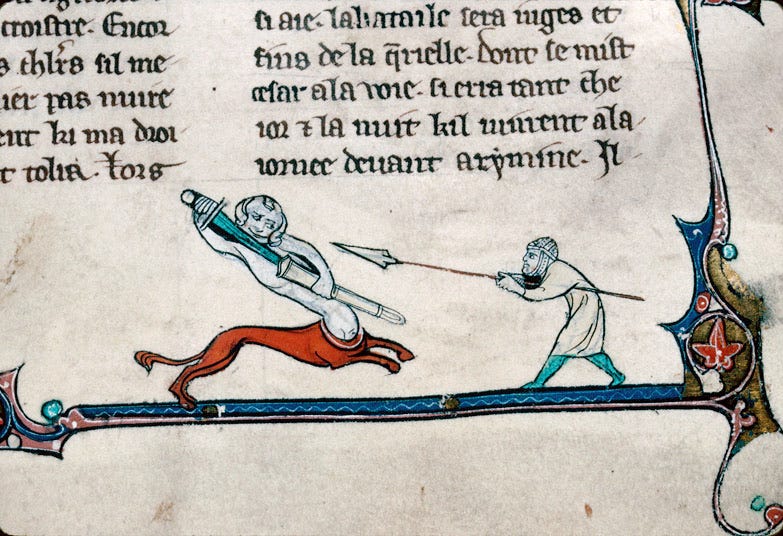 croistre. Encor
s chlrs sil me
ier pas nuire
ent ki ma droi
t tolia. Lors
si aie. la bataile sera iuges et
fins de la q̄relle. dont se mist
cesar a la voie. si erra tant che
ior ⁊ la nuit kil vinrent a la
iornee deuant arymine. Il